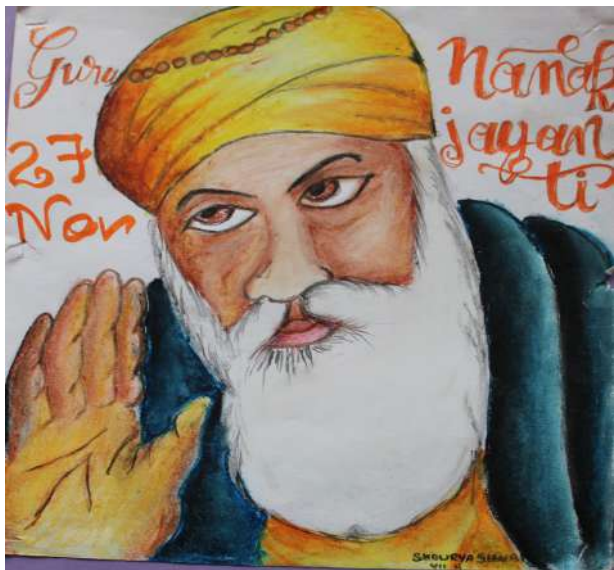 Guru
Nanak
jayan
ti
27
Nov
SHOURYA
VII